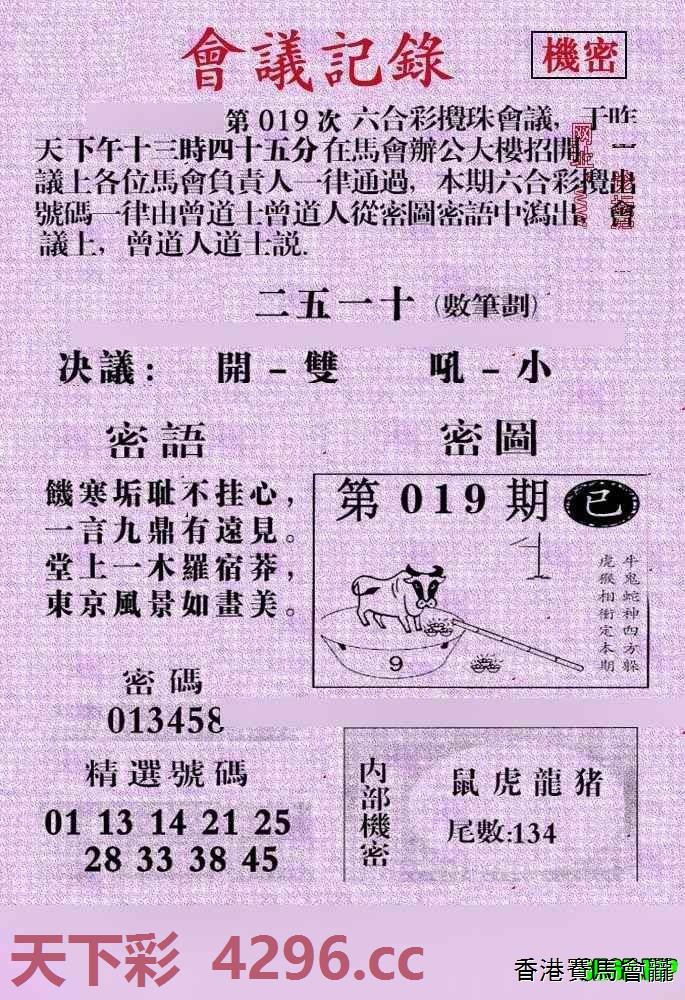 會議記錄
機密
第019次 六合彩攪珠會議，于昨
天下午十三時四十五分在馬會辦公大樓招開
議上各位馬會負責人一律通過，本期六合彩攪出
號碼一律由曾道士曾道人從密圖密語中瀉出 會
議上，曾道人道士説.
二五一十 (數筆劃)
决議： 開－雙 吼－小
密語
饑寒垢耻不挂心，
一言九鼎有遠見。
堂上一木羅宿莽，
東京風景如畫美。
密圖
第019期 已
牛鬼蛇神四方躲
虎猴相衝定本期
9
密碼
013458
精選號碼
01 13 14 21 25
28 33 38 45
内部機密
鼠虎龍猪
尾數:134
天下彩 4296.cc
香港賽馬會